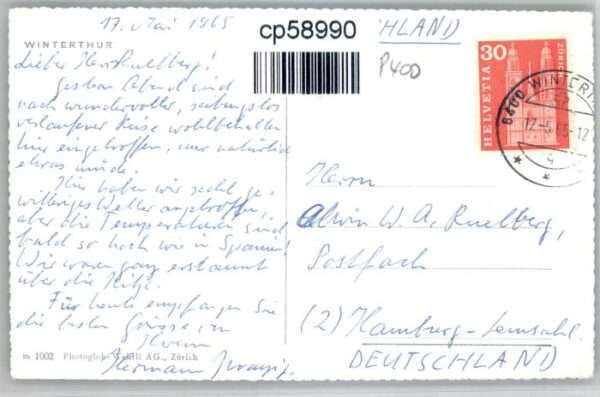 17. Mai 1965
WINTERTHUR
Lieber Herr Ruelberg!
Gestern Abend sind
nach wundervoller, reibungslos
verlaufener Reise wohlbehalten
hier eingetroffen, nur natürlich
etwas müde.
Hier haben wir recht ge-
wittriges Wetter angetroffen,
aber die Temperaturen sind
bald so hoch wie in Spanien!
Wir waren ganz erstaunt
über die Hitze.
Für heute empfangen Sie
die besten Grüsse von
Ihrem
Hermann
m 1002 Photoglob-Wehrli AG., Zürich
cp58990
HLAND
P400
30
HELVETIA
ZÜRICH
8400 WINTERTH
17-5 65-12
4
Herrn
Alwin W. A. Ruelberg,
Postfach
(2) Hamburg-
DEUTSCHLAND